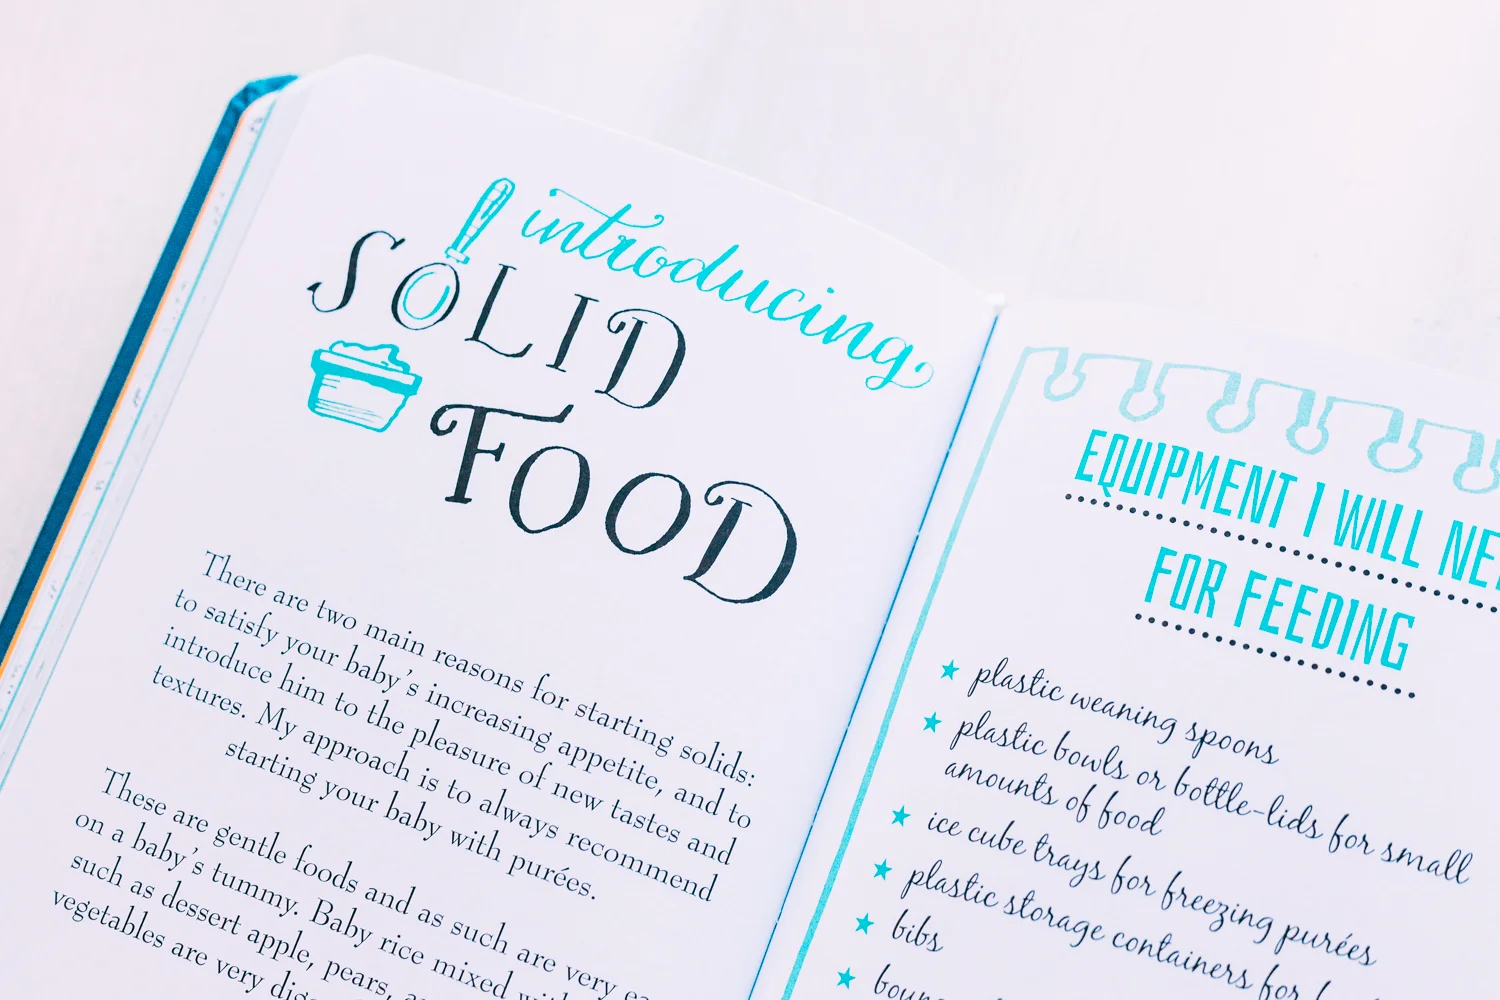 introducing
SOLID
FOOD
There are two main reasons for starting solids:
to satisfy your baby's increasing appetite, and to
introduce him to the pleasure of new tastes and
textures. My approach is to always recommend
starting your baby with purées.
These are gentle foods and as such are very
on a baby's tummy. Baby rice mixed
such as dessert apple, pears,
vegetables are very
EQUIPMENT I WILL
FOR FEEDING
★ plastic weaning spoons
★ plastic bowls or bottle-lids for small
amounts of food
★ ice cube trays for freezing purées
★ plastic storage containers for
★ bibs
★